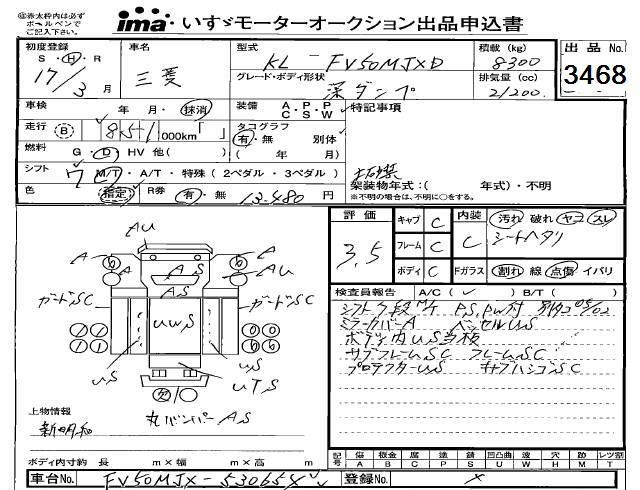 ㊟赤太枠内は必ず
ボールペンで
ご記入下さい。
ima いすゞモーターオークション出品申込書
初度登録
S・H・R
17/3 月
車名
三菱
型式
KL-FV50MJXD
グレード・ボディ形状
深ダンプ
積載 (kg)
8300
排気量 (cc)
21200
出品 No.
3468
車検
年 月・抹消
装備 A・P・P
C・S・W
特記事項
走行 B 851,000km「 」
タコグラフ
有・無 別体
( 年 月)
燃料 G・D・HV 他( )
シフト 7 M/T・A/T・特殊 (2ペダル・3ペダル)
色 指定 R券 有・無 13,480 円
架装物年式:( 年式)・不明
※不明の場合は、不明に○をする。
評価
3.5
キャブ C
フレーム C
ボディ C
内装 C
汚れ 破れ ヤコゲ スレ
シートヘタリ
Fガラス 割れ 線 点傷 イバリ
検査員報告 A/C ( ✓ ) B/T ( )
シフト7段M/T P.S,PW付
ミラーカバーA ベッセルUS
ボディ内US当板
サブフレームSC フレームSC
プロテクターUS キャブハシゴSC
AU
A
A
A
A
AS
AU
AS
ガードSC
ガードSC
UWS
US
US
UTS
上物情報
新明和
丸バンパーAS
ボディ内寸約 長 m×幅 m×高 m
記号 傷 A 板金 B 腐 C 塗 P 錆 S 凹凸曲 U 波 W 穴 H 跡 M レンズ割 T
車台No. FV50MJX-530654
登録No. ×